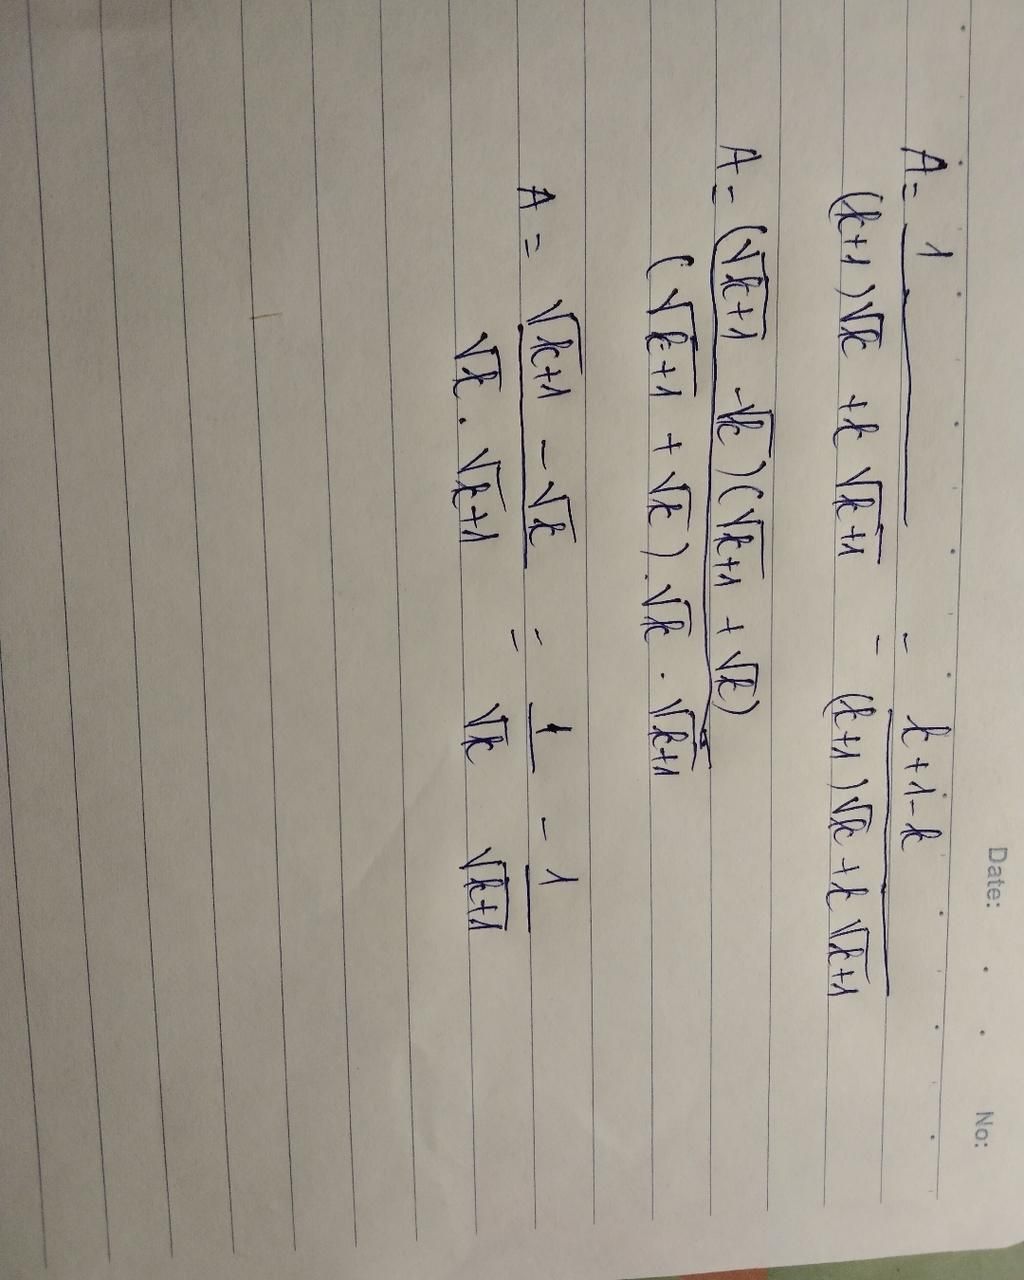 Date: No:
A = 1/((k+1)√k + k√(k+1)) = (k+1-k)/((k+1)√k + k√(k+1))
A = (√(k+1) - √k)(√(k+1) + √k)/((√(k+1) + √k).√k . √(k+1))
A = (√(k+1) - √k)/(√k . √(k+1)) = 1/√k - 1/√(k+1)